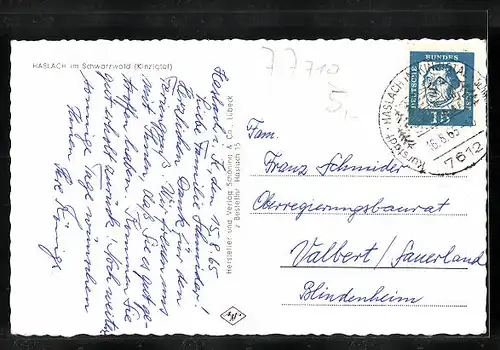 HASLACH im Schwarzwald (Kinzigtal)
Haslach i. K., den 15.8.65
Liebe Familie Schmider!
Herzlichen Dank für den
Wir freuen uns
mit Ihnen, daß Sie es gut ge-
troffen haben. Kommen Sie
gut erholt zurück! Noch weitere
sonnige Tage wünschen
Ihnen
Ihre
Hersteller und Verlag Schöning & Co., Lübeck
z Bestellnr Haslach 15
77710
5,-
DEUTSCHE BUNDESPOST
15
HASLACH
16.8.65
7612
Fam.
Franz Schmider
Oberregierungsbaurat
Valbert/Sauerland
Blindenheim